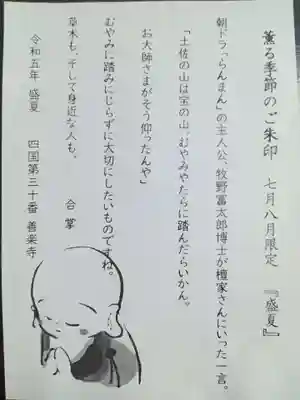 薫る季節のご朱印　七月八月限定　『盛夏』
朝ドラ「らんまん」の主人公、牧野冨太郎博士が檀家さんにいった一言。
「土佐の山は宝の山。むやみやたらに踏んだらいかん。
お大師さまがそう仰ったんや」
むやみに踏みにじらずに大切にしたいものですね。
草木も、そして身近な人も、
合掌
令和五年　盛夏　四国第三十番　善楽寺